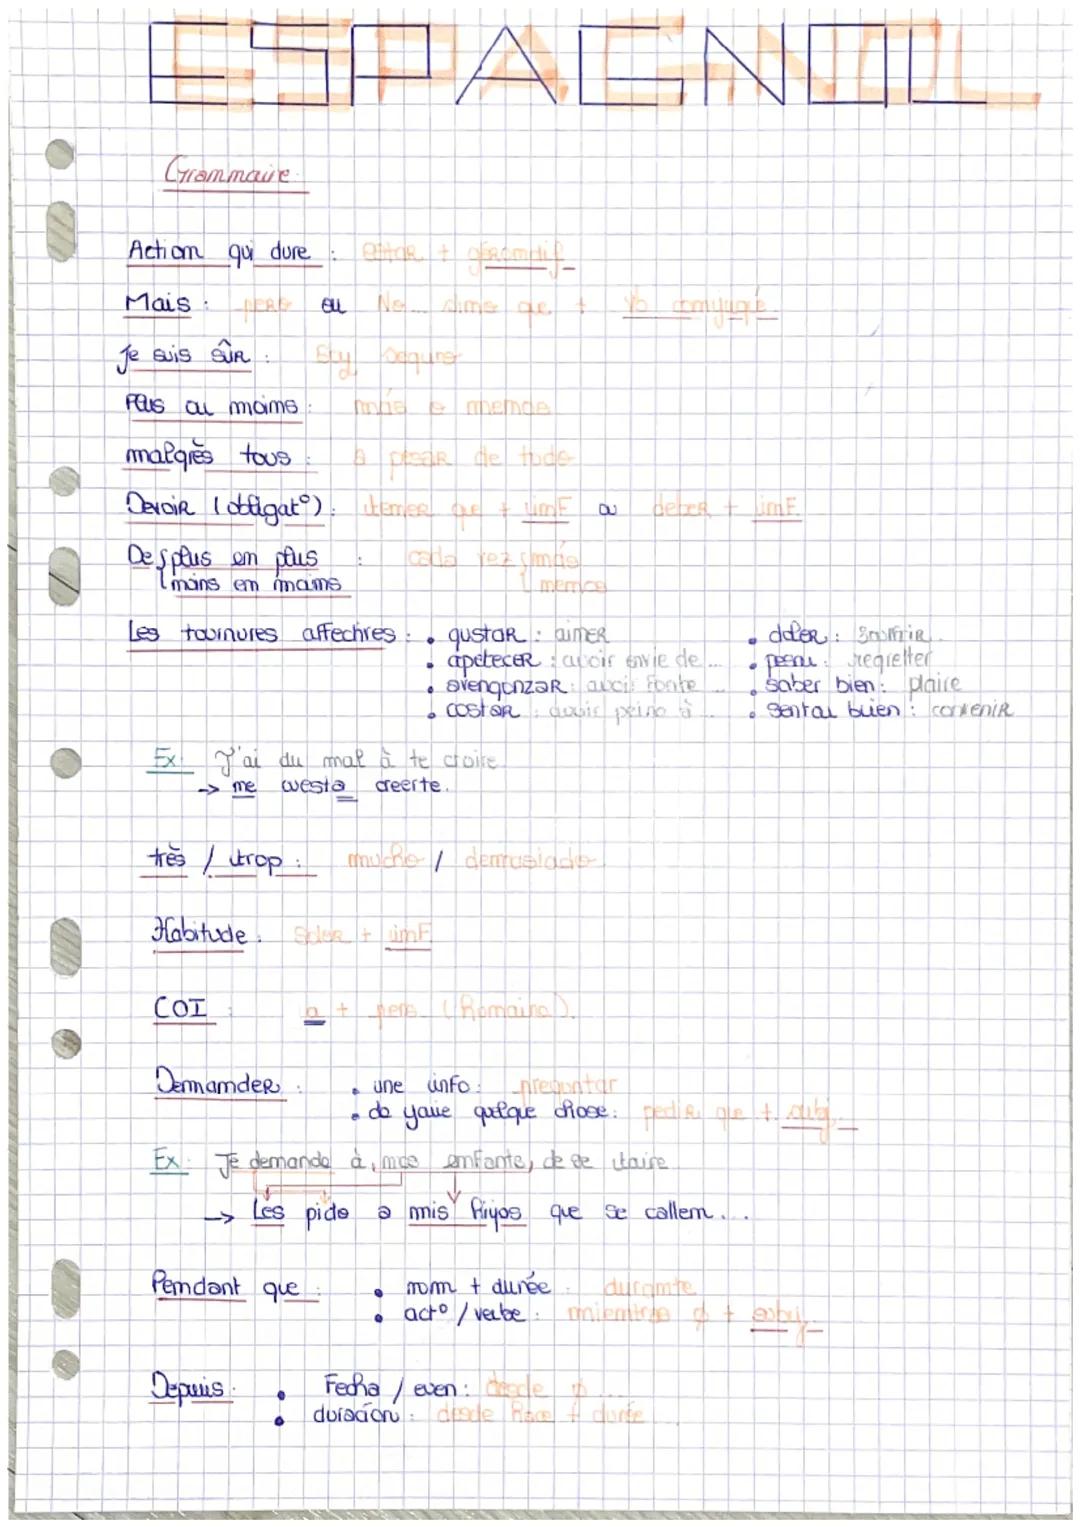 ESPAGNOL
Grammaire
Action qui dure : estar + gérondif
Mais : pero ou No... sino que + Vb conjugué
Je suis sûr : Estoy seguro
Plus ou moins : más o menos
malgrès tous : a pesar de todo
Devoir (obligat°) : tener que + imf ou deber + imf
De plus en plus : cada vez más
moins en moins menos
Les tournures affectives : • gustar : aimer • doler : Souffrir
• apetecer : avoir envie de ... • penar : regretter
• avengonzar : avoir honte ... • saber bien : plaire
• costar : avoir peine à ... • sentar bien : convenir
Ex : J'ai du mal à te croire.
→ me cuesta creerte.
très / trop : mucho / demasiado
Habitude : Soler + imf
COI : a + pers (Romaine).
Demander : • une info : preguntar
• de faire quelque chose : pedir que + subj
Ex : Je demande à mes enfants, de se taire
→ Les pido a mis hiyos que se callen...
Pendant que : • nom + durée : durante
• act° / verbe : mientras ø + subj
Depuis : • Fecha / even : desde ø ...
• duración : desde hace + durée ...